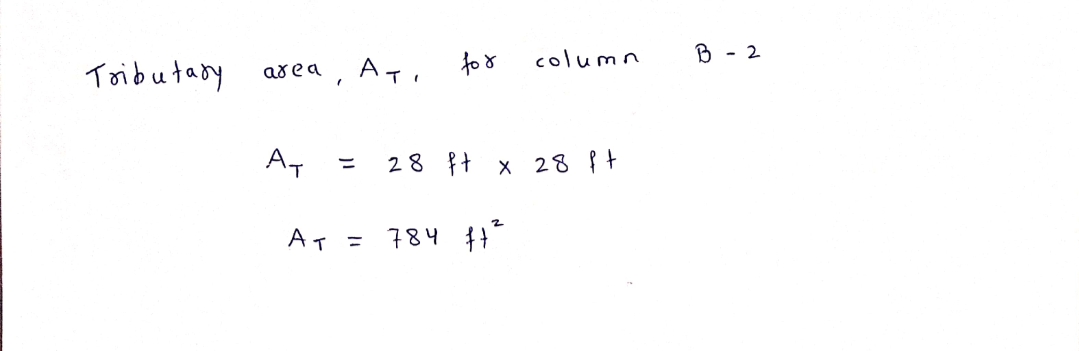 Tributary area, A_T, for column B - 2
A_T = 28 ft x 28 ft
A_T = 784 ft²